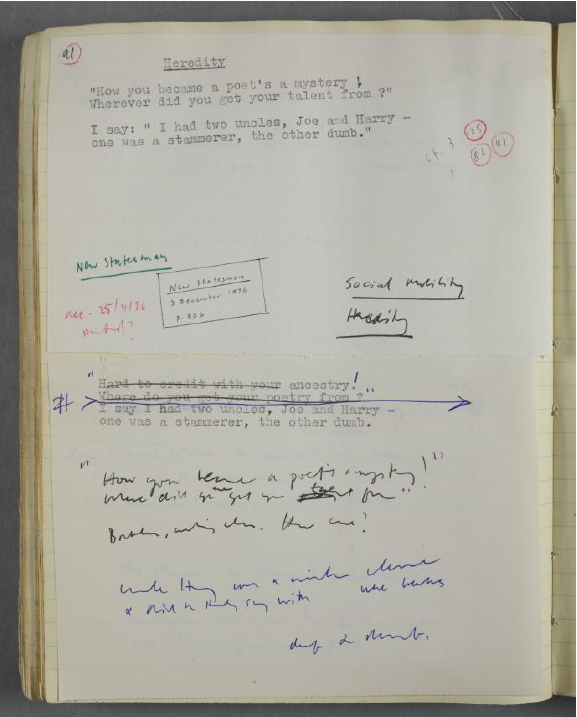 91
Heredity
"How you became a poet's a mystery!
Wherever did you get your talent from ?"
I say: " I had two uncles, Joe and Harry -
one was a stammerer, the other dumb."
3
25
86
91
1
New Statesman
New Statesman
3 December 1976
p. 806
acc. 25/4/76
Social Mobility
Heredity
"Hard to credit with your ancestry!
Where do you get your poetry from ?"
I say I had two uncles, Joe and Harry -
one was a stammerer, the other dumb.
"How you became a poet's a mystery!"
where did you get your from"
Uncle Harry was a
&
deaf & dumb.